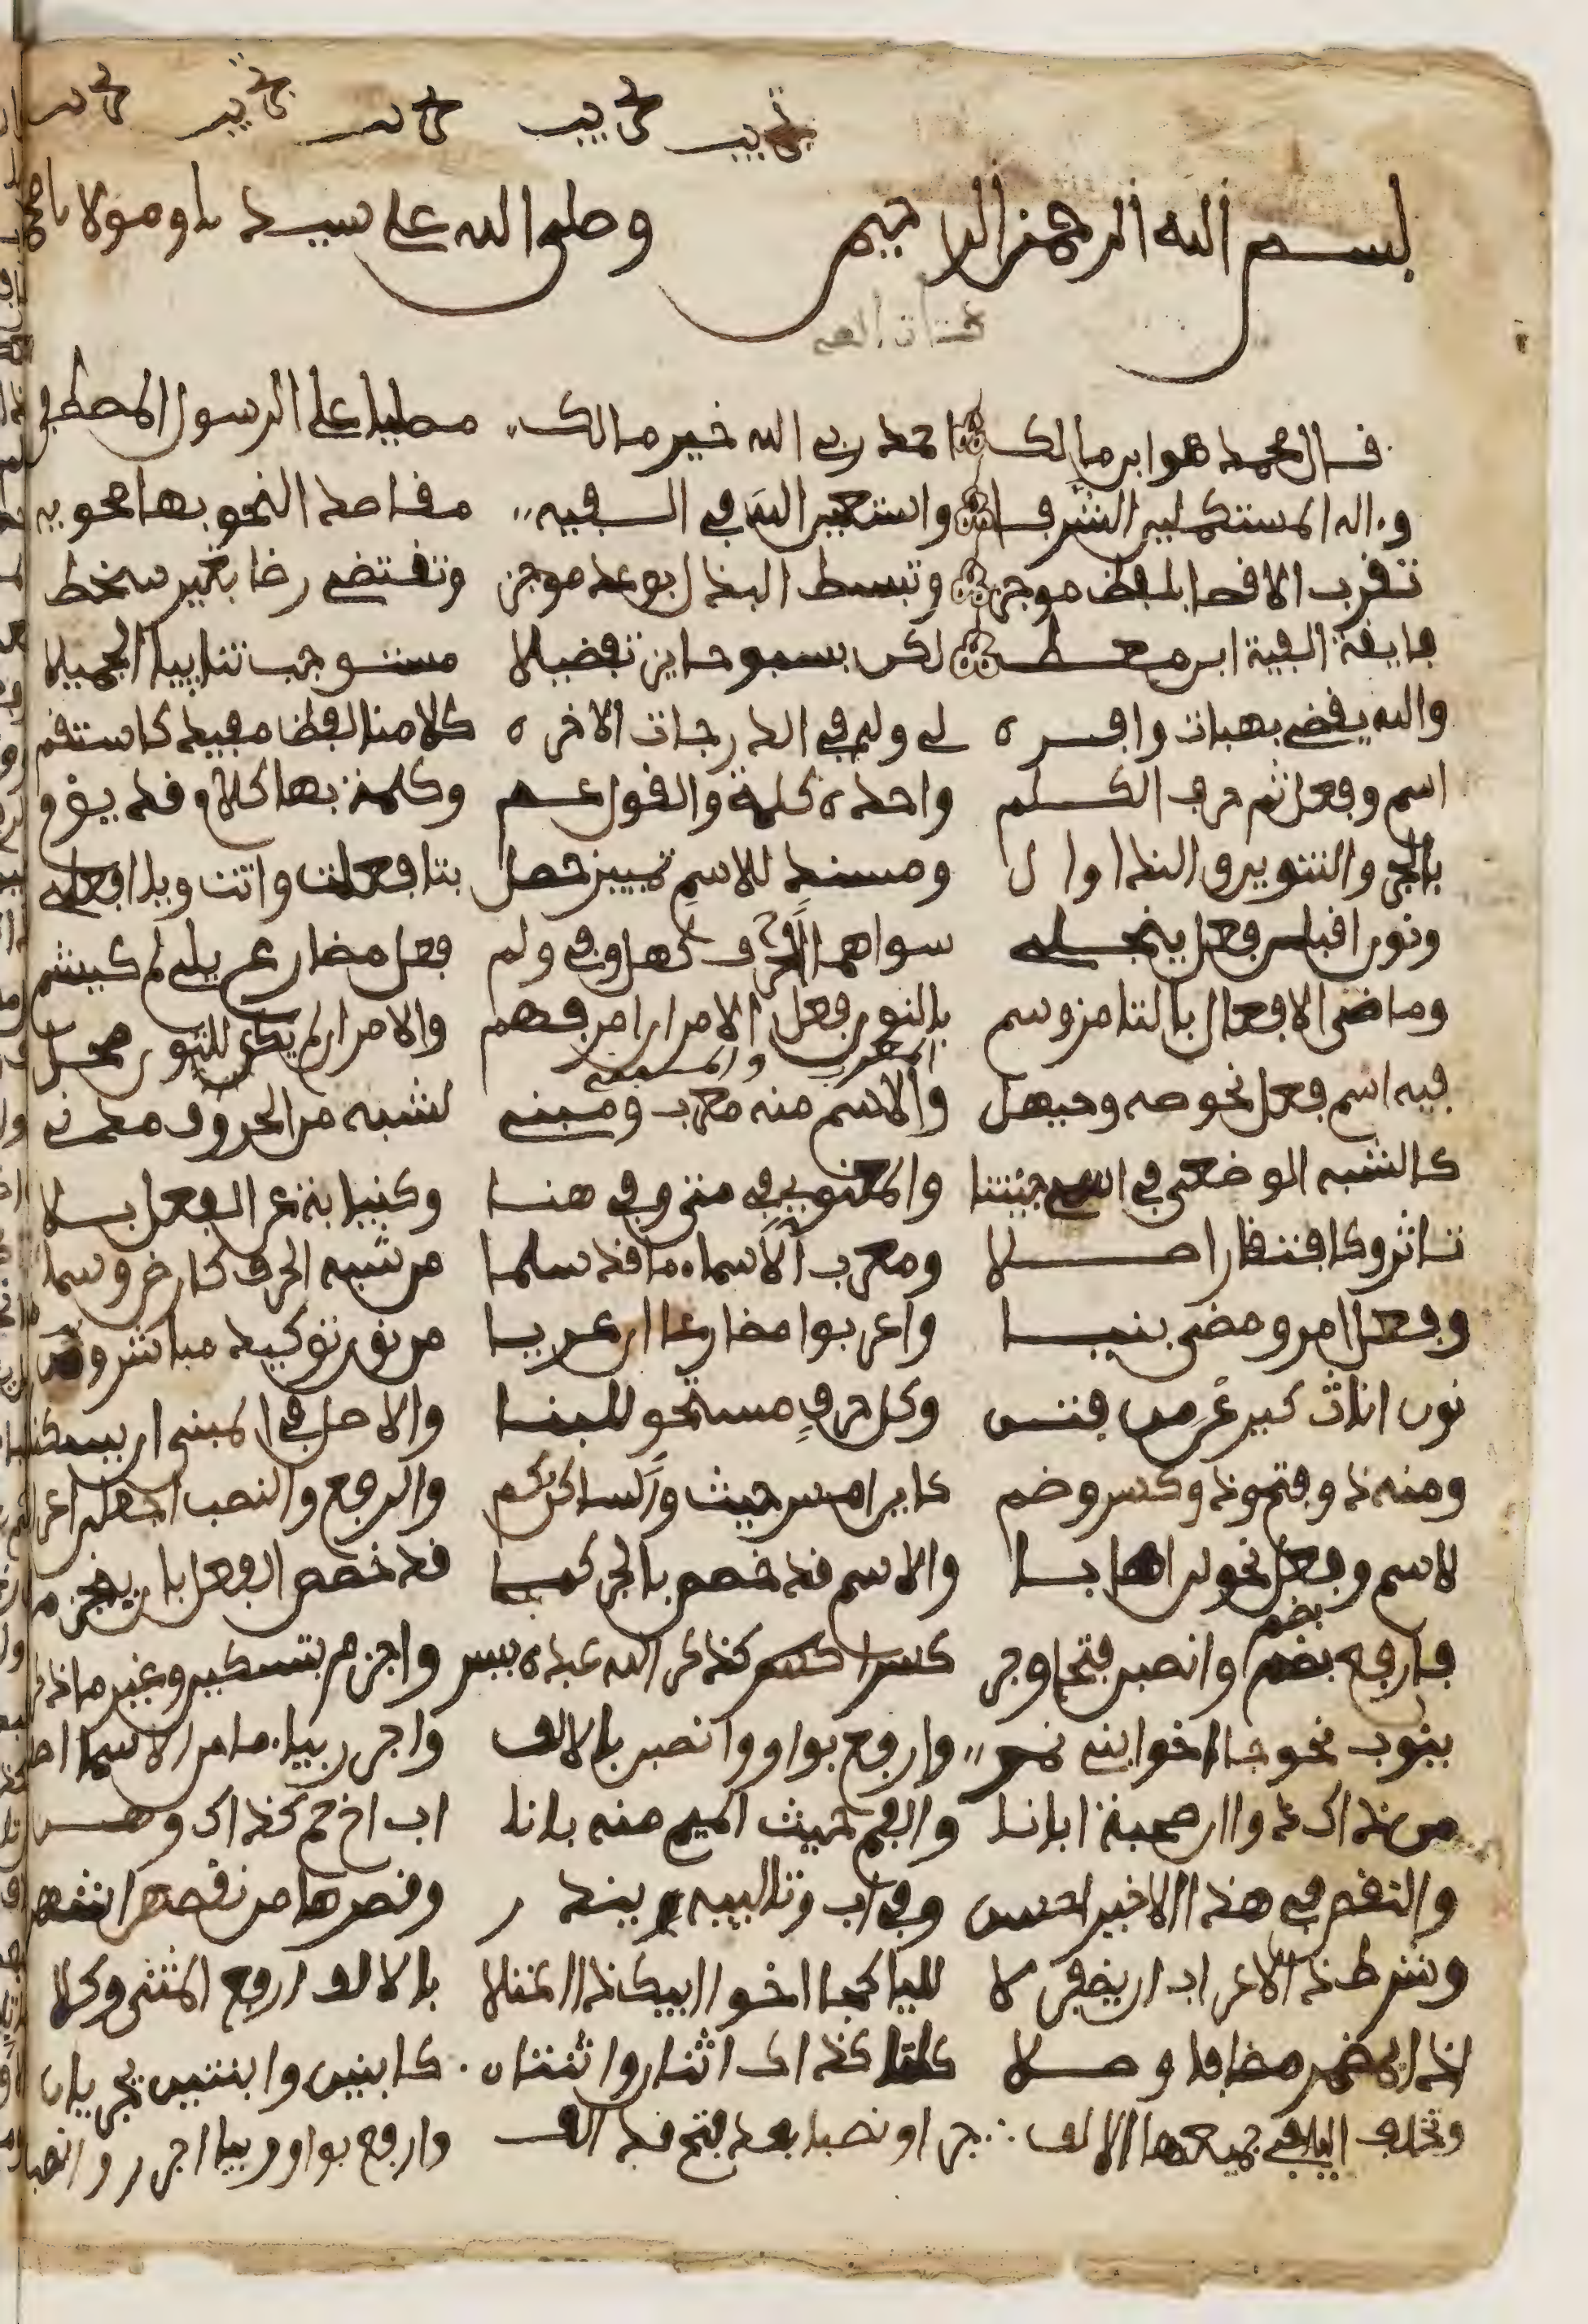 بسم الله الرحمن الرحيم وصلى الله على سيدنا ومولانا محمد
قال محمد هو ابن مالك احمد ربي الله خير مالك مصليا على الرسول المصطفى
وءاله المستكملين الشرفا واستعين الله في الفيه مقاصد النحو بها محويه
تقرب الاقصا بلفظ موجز وتبسط البذل بوعد موجز وتقتضي رضا بغير سخط
فايقة الفية ابن معط لكن بسبو حايز تفضيلا مستوجب ثنايي الجميلا
والله يقضي بهبات وافره لي وله في الدرجات الاخره كلامنا لفظ مفيد كاستقم
اسم وفعل ثم حرف الكلم واحده كلمة والقول عم وكلمة بها كلام قد يؤم
بالجر والتنوين والندا وال ومسند للاسم تمييز حصل بتا فعلت واتت ويا افعلي
ونون اقبلن فعل ينجلي سواهما الحرف كهل وفي ولم فعل مضارع يلي لم كيشم
وماضي الافعال بالتا مز وسم بالنون فعل الامر ان امر فهم والامر ان لم يك للنون محل
المعرب والمبني
فيه اسم فعل نحو صه وحيهل والاسم منه معرب ومبني لشبه من الحروف مدني
كالشبه الوضعي في اسمي جيتنا والمعنوي في متى وفي هنا وكنيابة عن الفعل بلا
تاثر وكافتقار اصلا ومعرب الاسماء ما قد سلما من شبه الحرف كارض وسما
وفعل امر ومضي بنيا واعربوا مضارعا ان عريا من نون توكيد مباشر ومن
نون اناث كيرعن من فتن وكل حرف مستحق للبنا والاصل في المبني ان يسكنا
ومنه ذو فتح وذو كسر وضم كاين امس حيث والساكن كم والرفع والنصب اجعلن اعرابا
لاسم وفعل نحو لن اهابا والاسم قد خصص بالجر كما قد خصص الفعل بان ينجزما
بضم
فارفع بضم وانصبن فتحا وجر كسرا كذكر الله عبده يسر واجزم بتسكين وغير ما ذكر
ينوب نحو جا اخوا بني نمر وارفع بواو وانصبن بالالف واجرر بياء ما من الاسما اصف
من ذاك ذو ان صحبة ابانا والفم حيث الميم منه بانا اب اخ حم كذاك وهن
والنقص في هذا الاخير احسن وفي اب وتالييه يندر وقصرها من نقصهن اشهر
وشرط ذا الاعراب ان يضفن لا لليا كجا اخو ابيك ذا اعتلا بالالف ارفع المثنى وكلا
اذا بمضمر مضافا وصلا كلتا كذاك اثنان واثنتان كابنين وابنتين يجريان
وتخلف اليا في جميعها الالف جرا ونصبا بعد فتح قد الف وارفع بواو وبيا اجرر وانصب